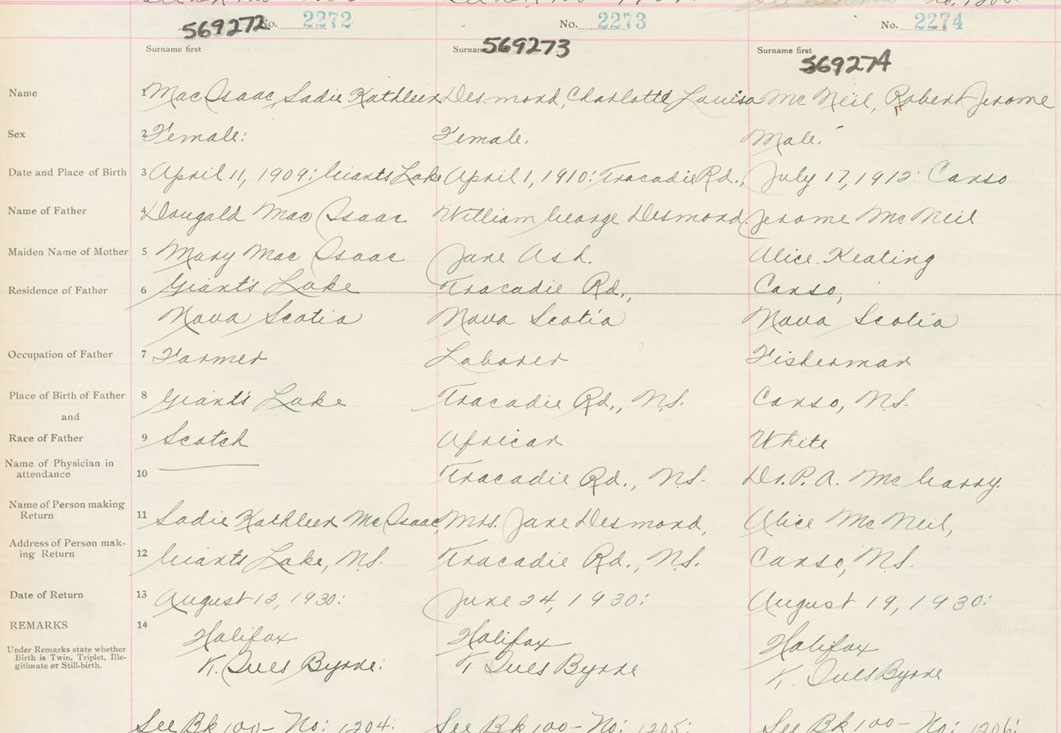 No. 2272 No. 2273 No. 2274
569272 569273 569274
Surname first Surname first Surname first
Name 1 Mac Isaac, Sadie Kathleen Desmond, Charlotte Louisa Mc Neil, Robert Jerome
Sex 2 Female: Female. Male.
Date and Place of Birth 3 April 11, 1909: Giants Lake April 1, 1910: Tracadie Rd., July 17, 1912: Canso
Name of Father 4 Dougald Mac Isaac William George Desmond Jerome Mc Neil
Maiden Name of Mother 5 Mary Mac Isaac Jane Ash. Alice Keating
Residence of Father 6 Giant's Lake Tracadie Rd., Canso,
Nova Scotia Nova Scotia Nova Scotia
Occupation of Father 7 Farmer Laborer Fisherman
Place of Birth of Father 8 Giant's Lake Tracadie Rd., N.S. Canso, N.S.
and
Race of Father 9 Scotch African White
Name of Physician in
attendance 10 Tracadie Rd., N.S. Dr. P. A. Mc Garry.
Name of Person making
Return 11 Sadie Kathleen Mc Isaac, Mrs. Jane Desmond, Alice Mc Neil,
Address of Person mak-
ing Return 12 Giants Lake, N.S. Tracadie Rd., N.S. Canso, N.S.
Date of Return 13 August 12, 1930: June 24, 1930: August 19, 1930:
REMARKS 14 Halifax Halifax Halifax
Under Remarks state whether
Birth is Twin, Triplet, Ille-
gitimate or Still-birth.
Byrne: Byrne Byrne
See Bk 100 - No: 1204: See Bk 100 - No: 1205: See Bk 100 - No: 1206: